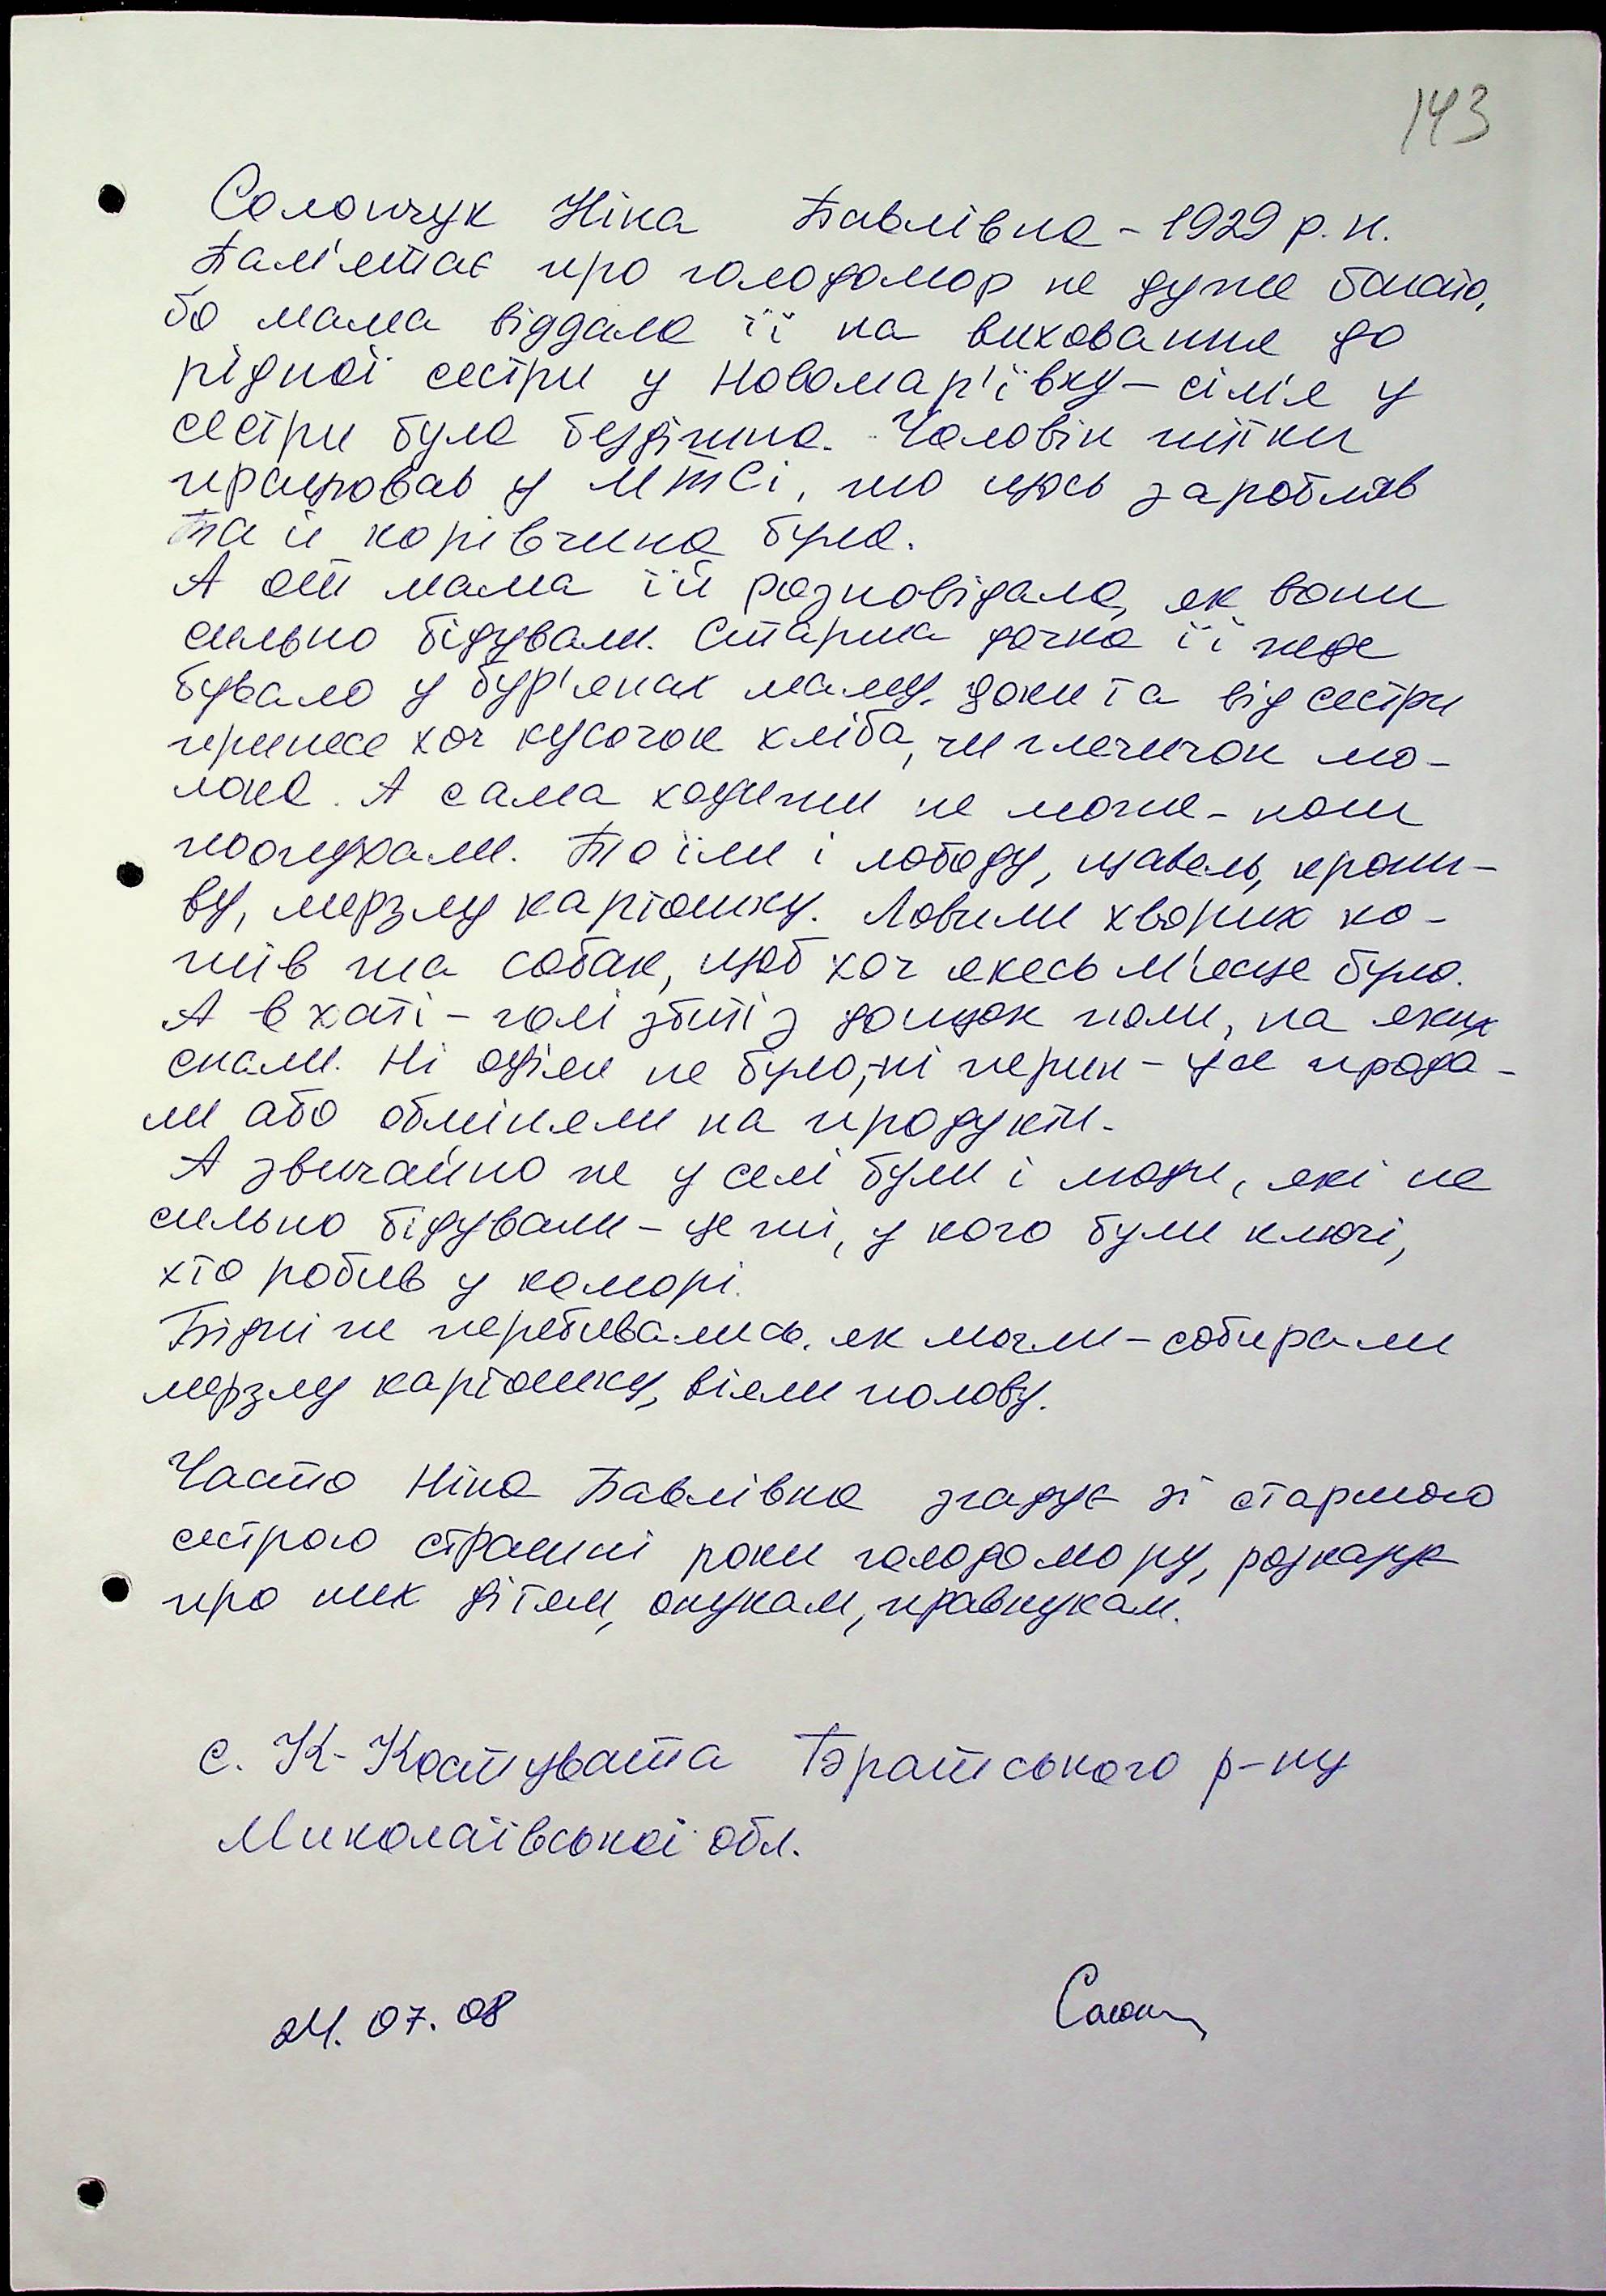 143
Солончук Ніна Павлівна - 1929 р. н.
Пам'ятає про голодомор не дуже багато,
бо мама віддала її на виховання до
рідної сестри у Новомар'ївку - сім'я у
сестри була бездітна. Чоловік тітки
працював у МТСі, то щось заробляв
та й корівчина була.
А от мама їй розповідала, як вони
сильно бідували. Старша дочка її жде
бувало у бур'янах маму, доки та від сестри
принесе хоч кусочок хліба, чи глечичок мо-
лока. А сама ходити не може - ноги
поопухали. То їли і лободу, щавель, кропи-
ву, мерзлу картошку. Ловили хворих ко-
тів та собак, щоб хоч якесь м'ясце було.
А в хаті - голі збиті з дощок поли, на яких
спали. Ні одіял не було, ні перин - усе прода-
ли або обміняли на продукти.
А звичайно же у селі були і люди, які не
сильно бідували - це ті, у кого були ключі,
хто робив у коморі.
Бідні ж перебивались, як могли - собирали
мерзлу картошку, віяли полову.
Часто Ніна Павлівна згадує зі старшою
сестрою страшні роки голодомору, розказує
про них дітям, онукам, правнукам.
с. К-Костувата Братського р-ну
Миколаївської обл.
24. 07. 08